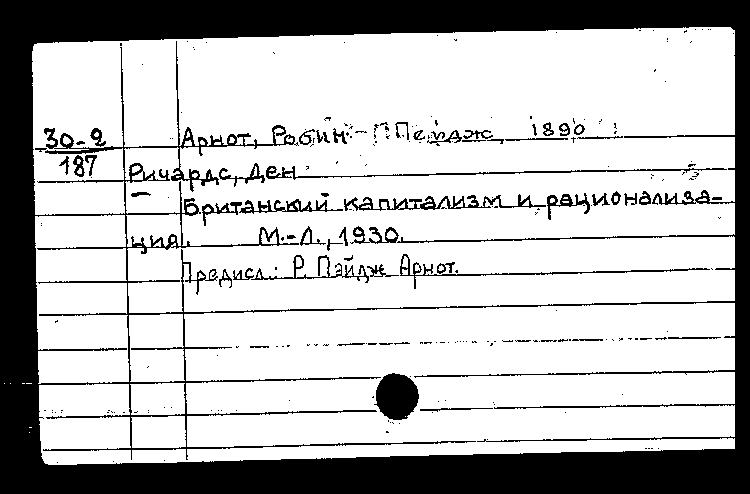 30-2
187
Арнот, Робин Пейдж, 1890
Ричардс, Ден
Британский капитализм и рационализа-
ция. М.-Л., 1930.
Предисл.: Р. Пэйдж Арнот.